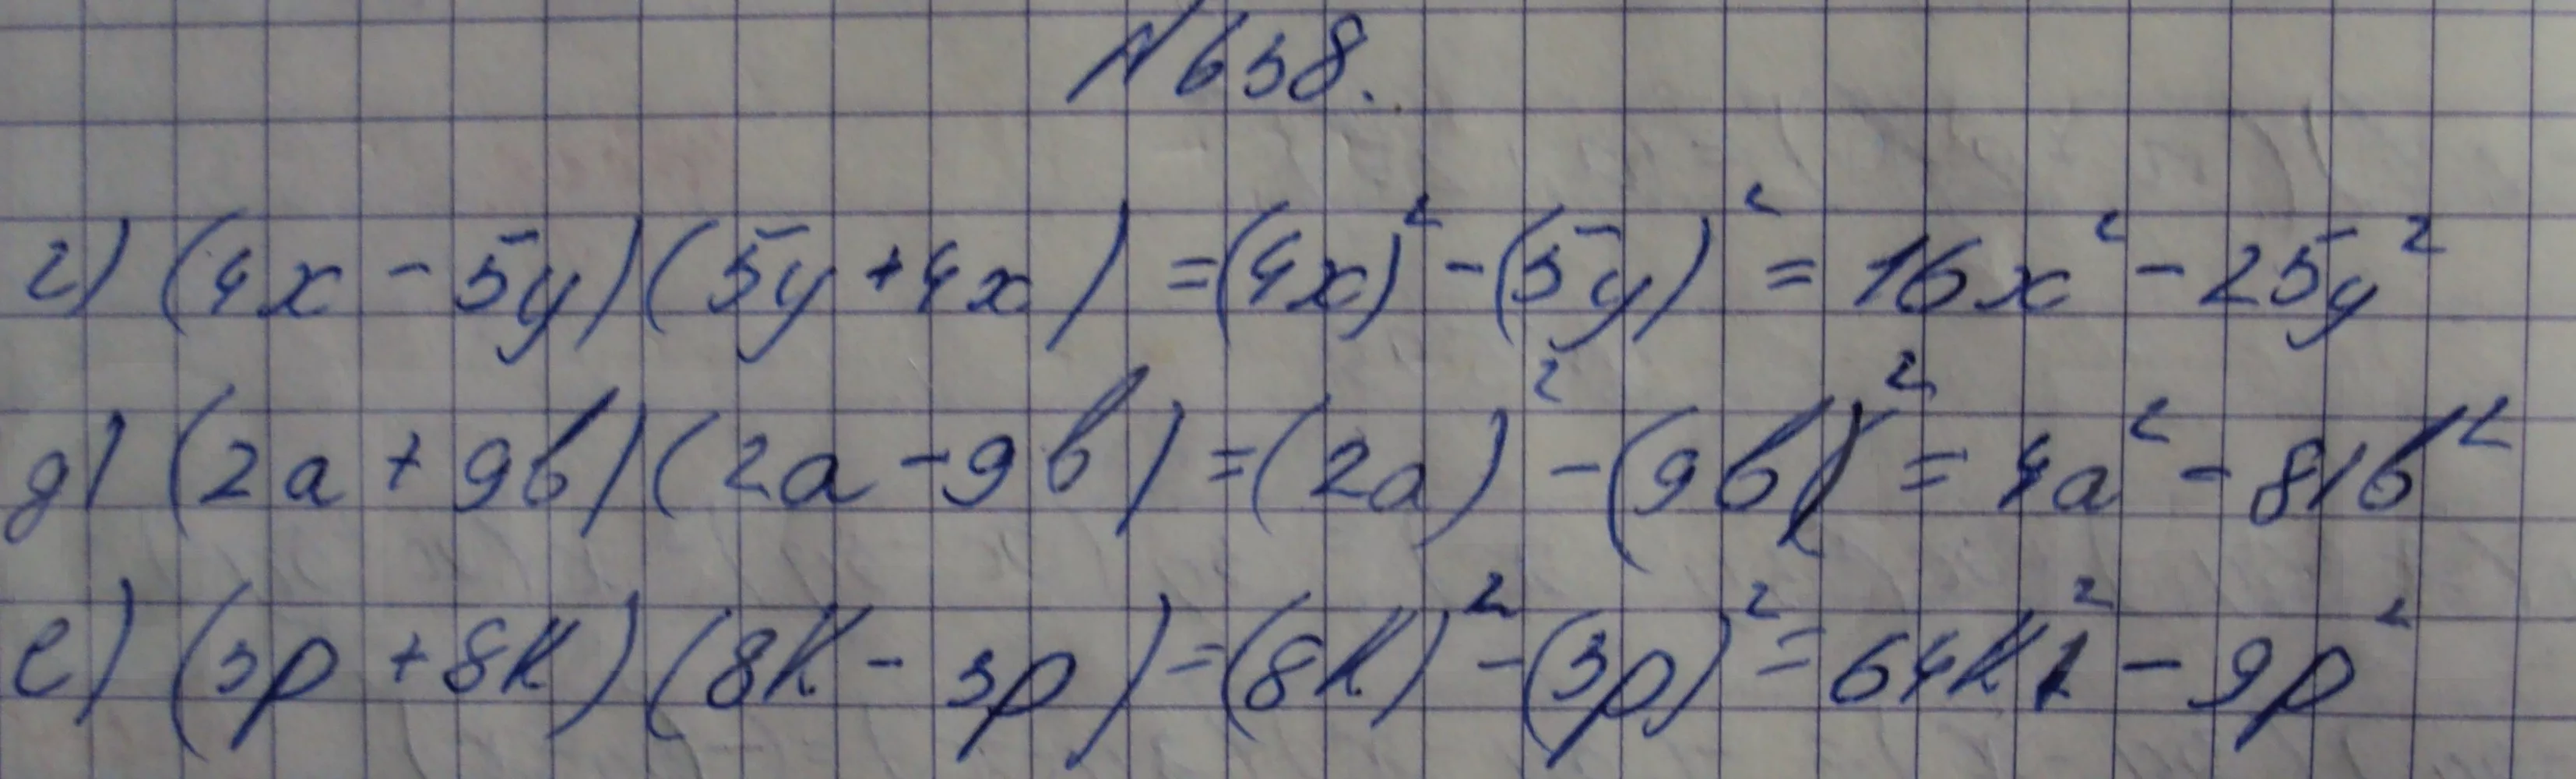 №638.
г) (4x - 5y)(5y + 4x) = (4x)² - (5y)² = 16x² - 25y²
д) (2a + 9b)(2a - 9b) = (2a)² - (9b)² = 4a² - 81b²
е) (3p + 8k)(8k - 3p) = (8k)² - (3p)² = 64k² - 9p²